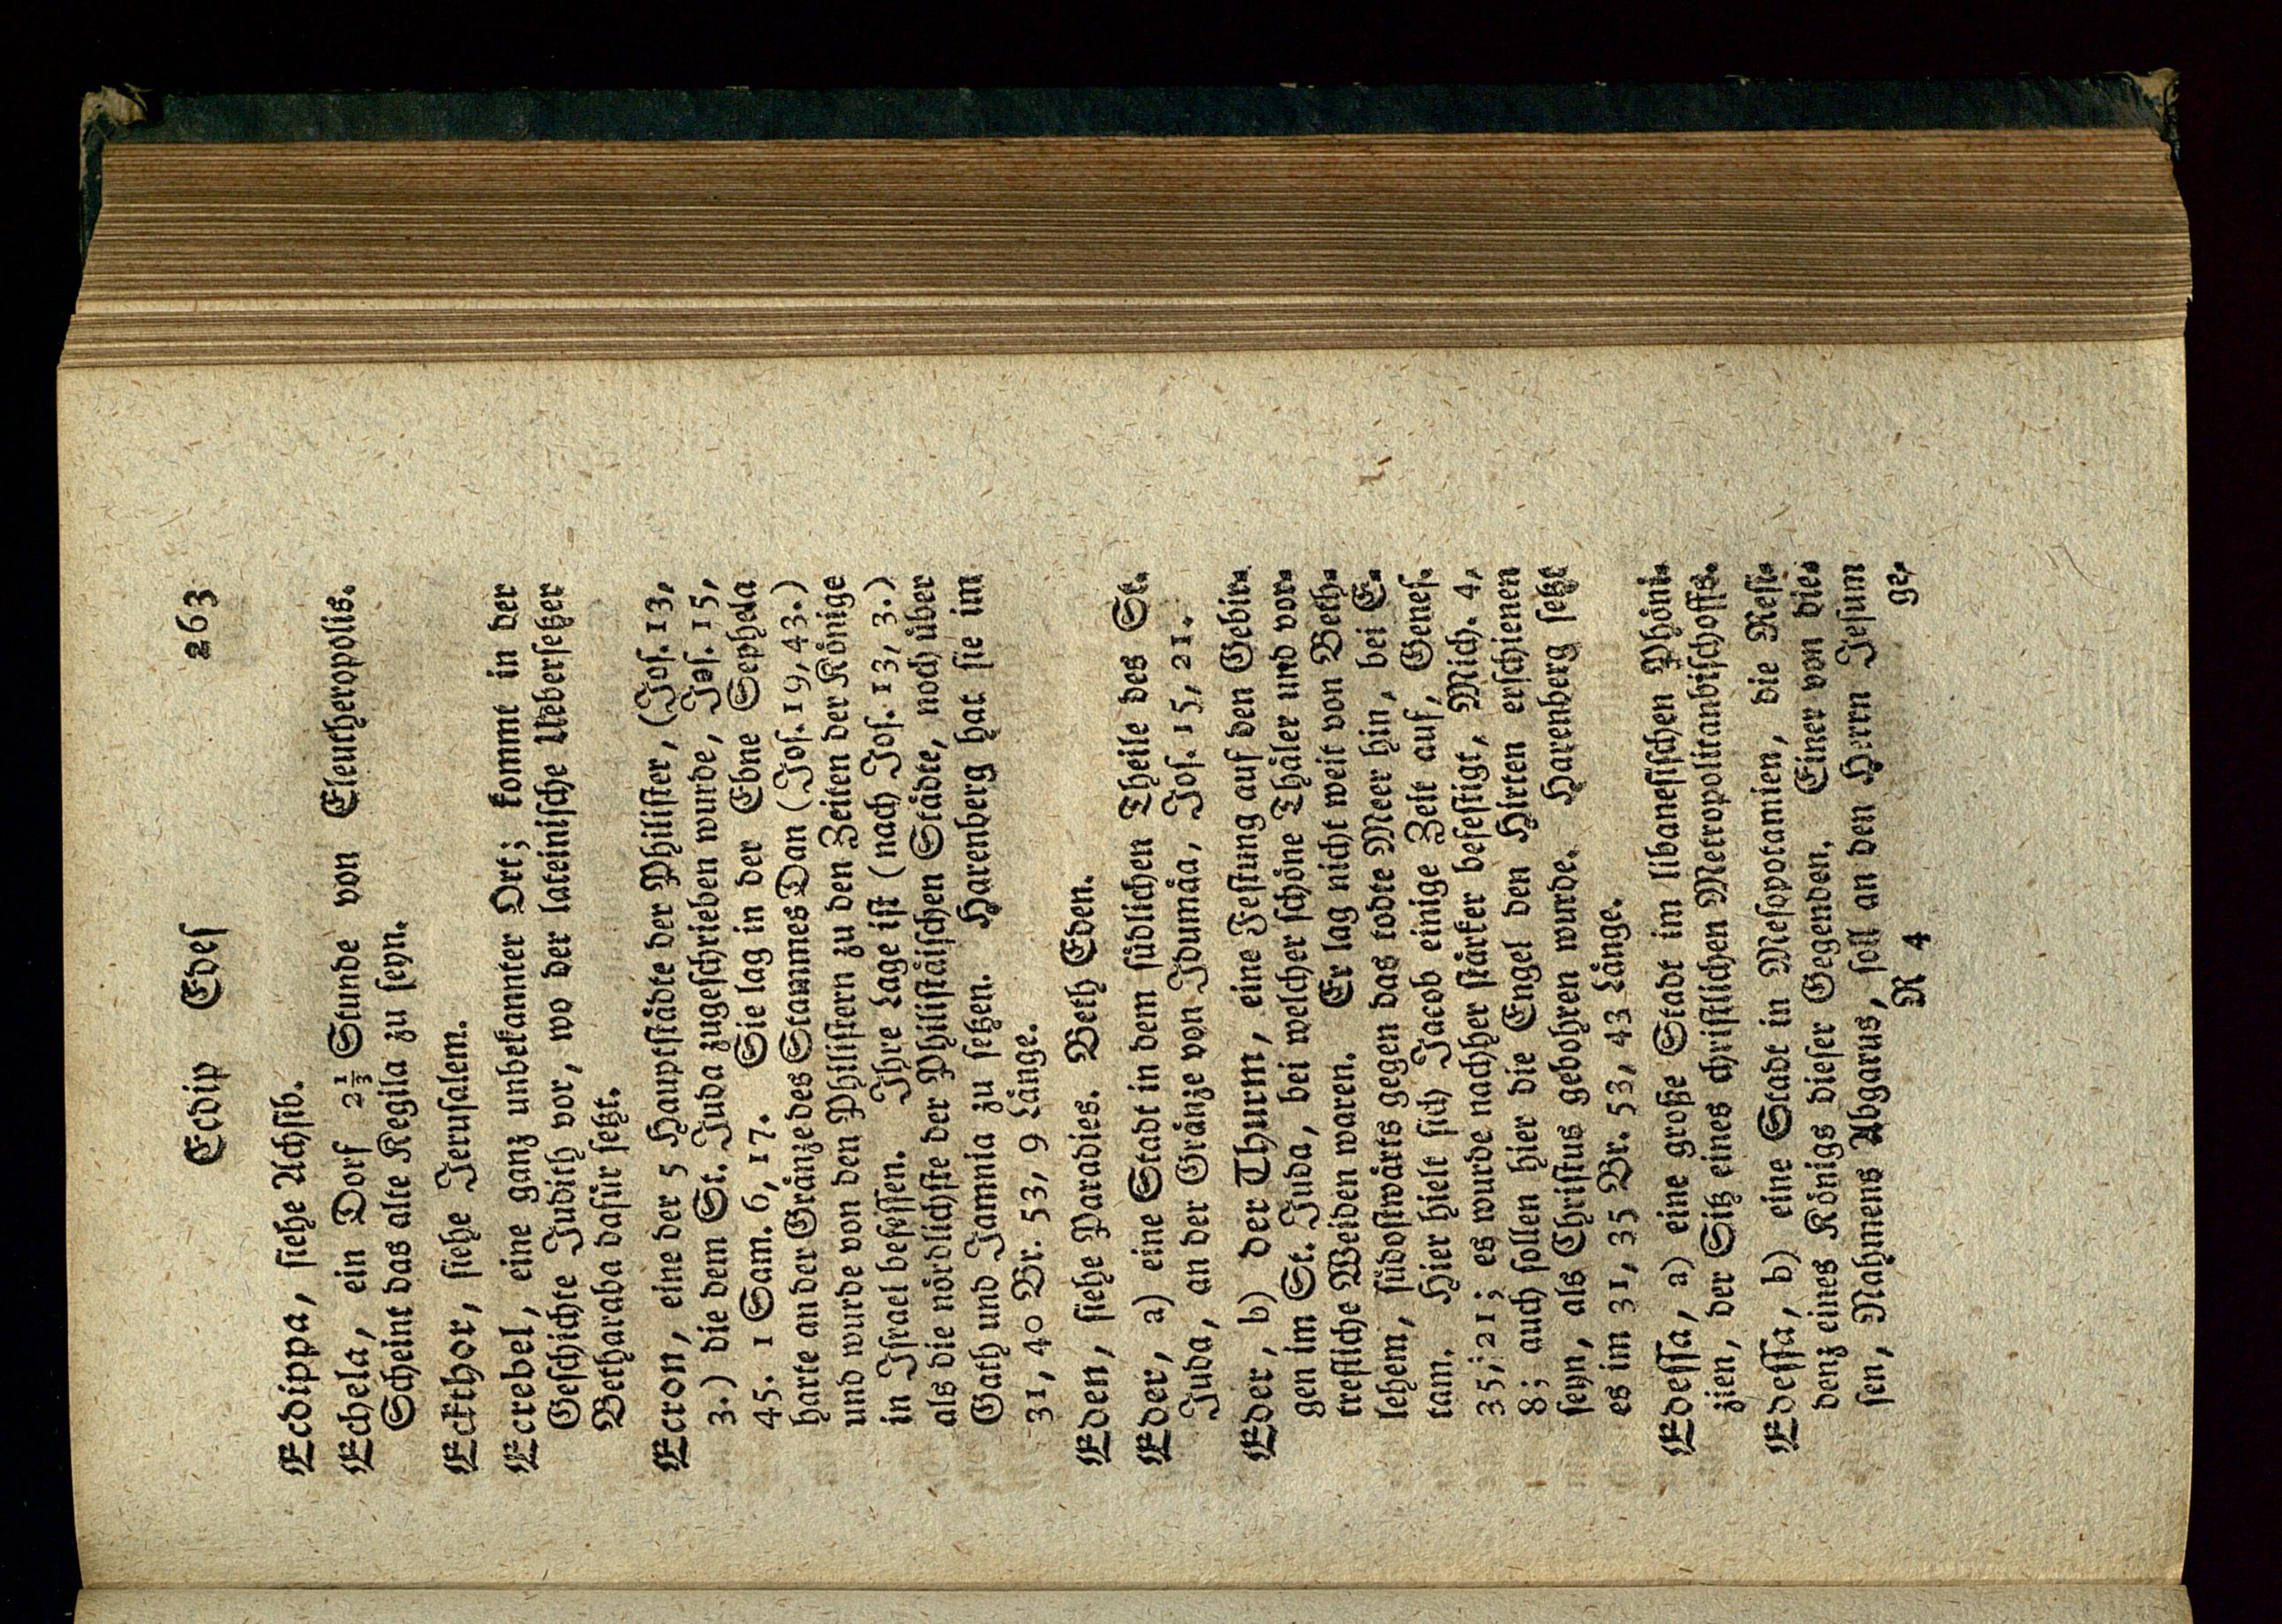 Ecdip Edes 263
Ecdippa, siehe Achsib.
Echela, ein Dorf 2⅓ Stunde von Eleutheropolis.
Scheint das alte Kegila zu seyn.
Eckthor, siehe Jerusalem.
Ecrebel, eine ganz unbekannter Ort; kommt in der
Geschichte Judith vor, wo der lateinische Uebersetzer
Betharaba dafür setzt.
Ecron, eine der 5 Hauptstädte der Philister, (Jos. 13,
3.) die dem St. Juda zugeschrieben wurde, Jos. 15,
45. 1 Sam. 6, 17. Sie lag in der Ebne Sephela
harte an der Gränze des Stammes Dan (Jos. 19, 43.)
und wurde von den Philistern zu den Zeiten der Könige
in Israel besessen. Ihre Lage ist (nach Jos. 13, 3.)
als die nördlichste der Philistäischen Städte, noch über
Gath und Jamnia zu setzen. Harenberg hat sie im
31, 40 Br. 53, 9 Länge.
Eden, siehe Paradies. Beth Eden.
Eder, a) eine Stadt in dem südlichen Theile des St.
Juda, an der Gränze von Idumäa, Jos. 15, 21.
Eder, b) der Thurm, eine Festung auf den Gebir-
gen im St. Juda, bei welcher schöne Thäler und vor-
trefliche Weiden waren. Er lag nicht weit von Beth-
lehem, südostwärts gegen das todte Meer hin, bei E-
tam. Hier hielt sich Jacob einige Zeit auf, Genes.
35, 21; es wurde nachher stärker befestigt, Mich. 4,
8; auch sollen hier die Engel den Hirten erschienen
seyn, als Christus gebohren wurde. Harenberg setzt
es im 31, 35 Br. 53, 43 Länge.
Edessa, a) eine große Stadt im libanesischen Phöni-
zien, der Sitz eines christlichen Metropolitanbischoffs.
Edessa, b) eine Stadt in Mesopotamien, die Resi-
denz eines Königs dieser Gegenden. Einer von die-
sen, Nahmens Abgarus, soll an den Herrn Jesum
R 4 ge-